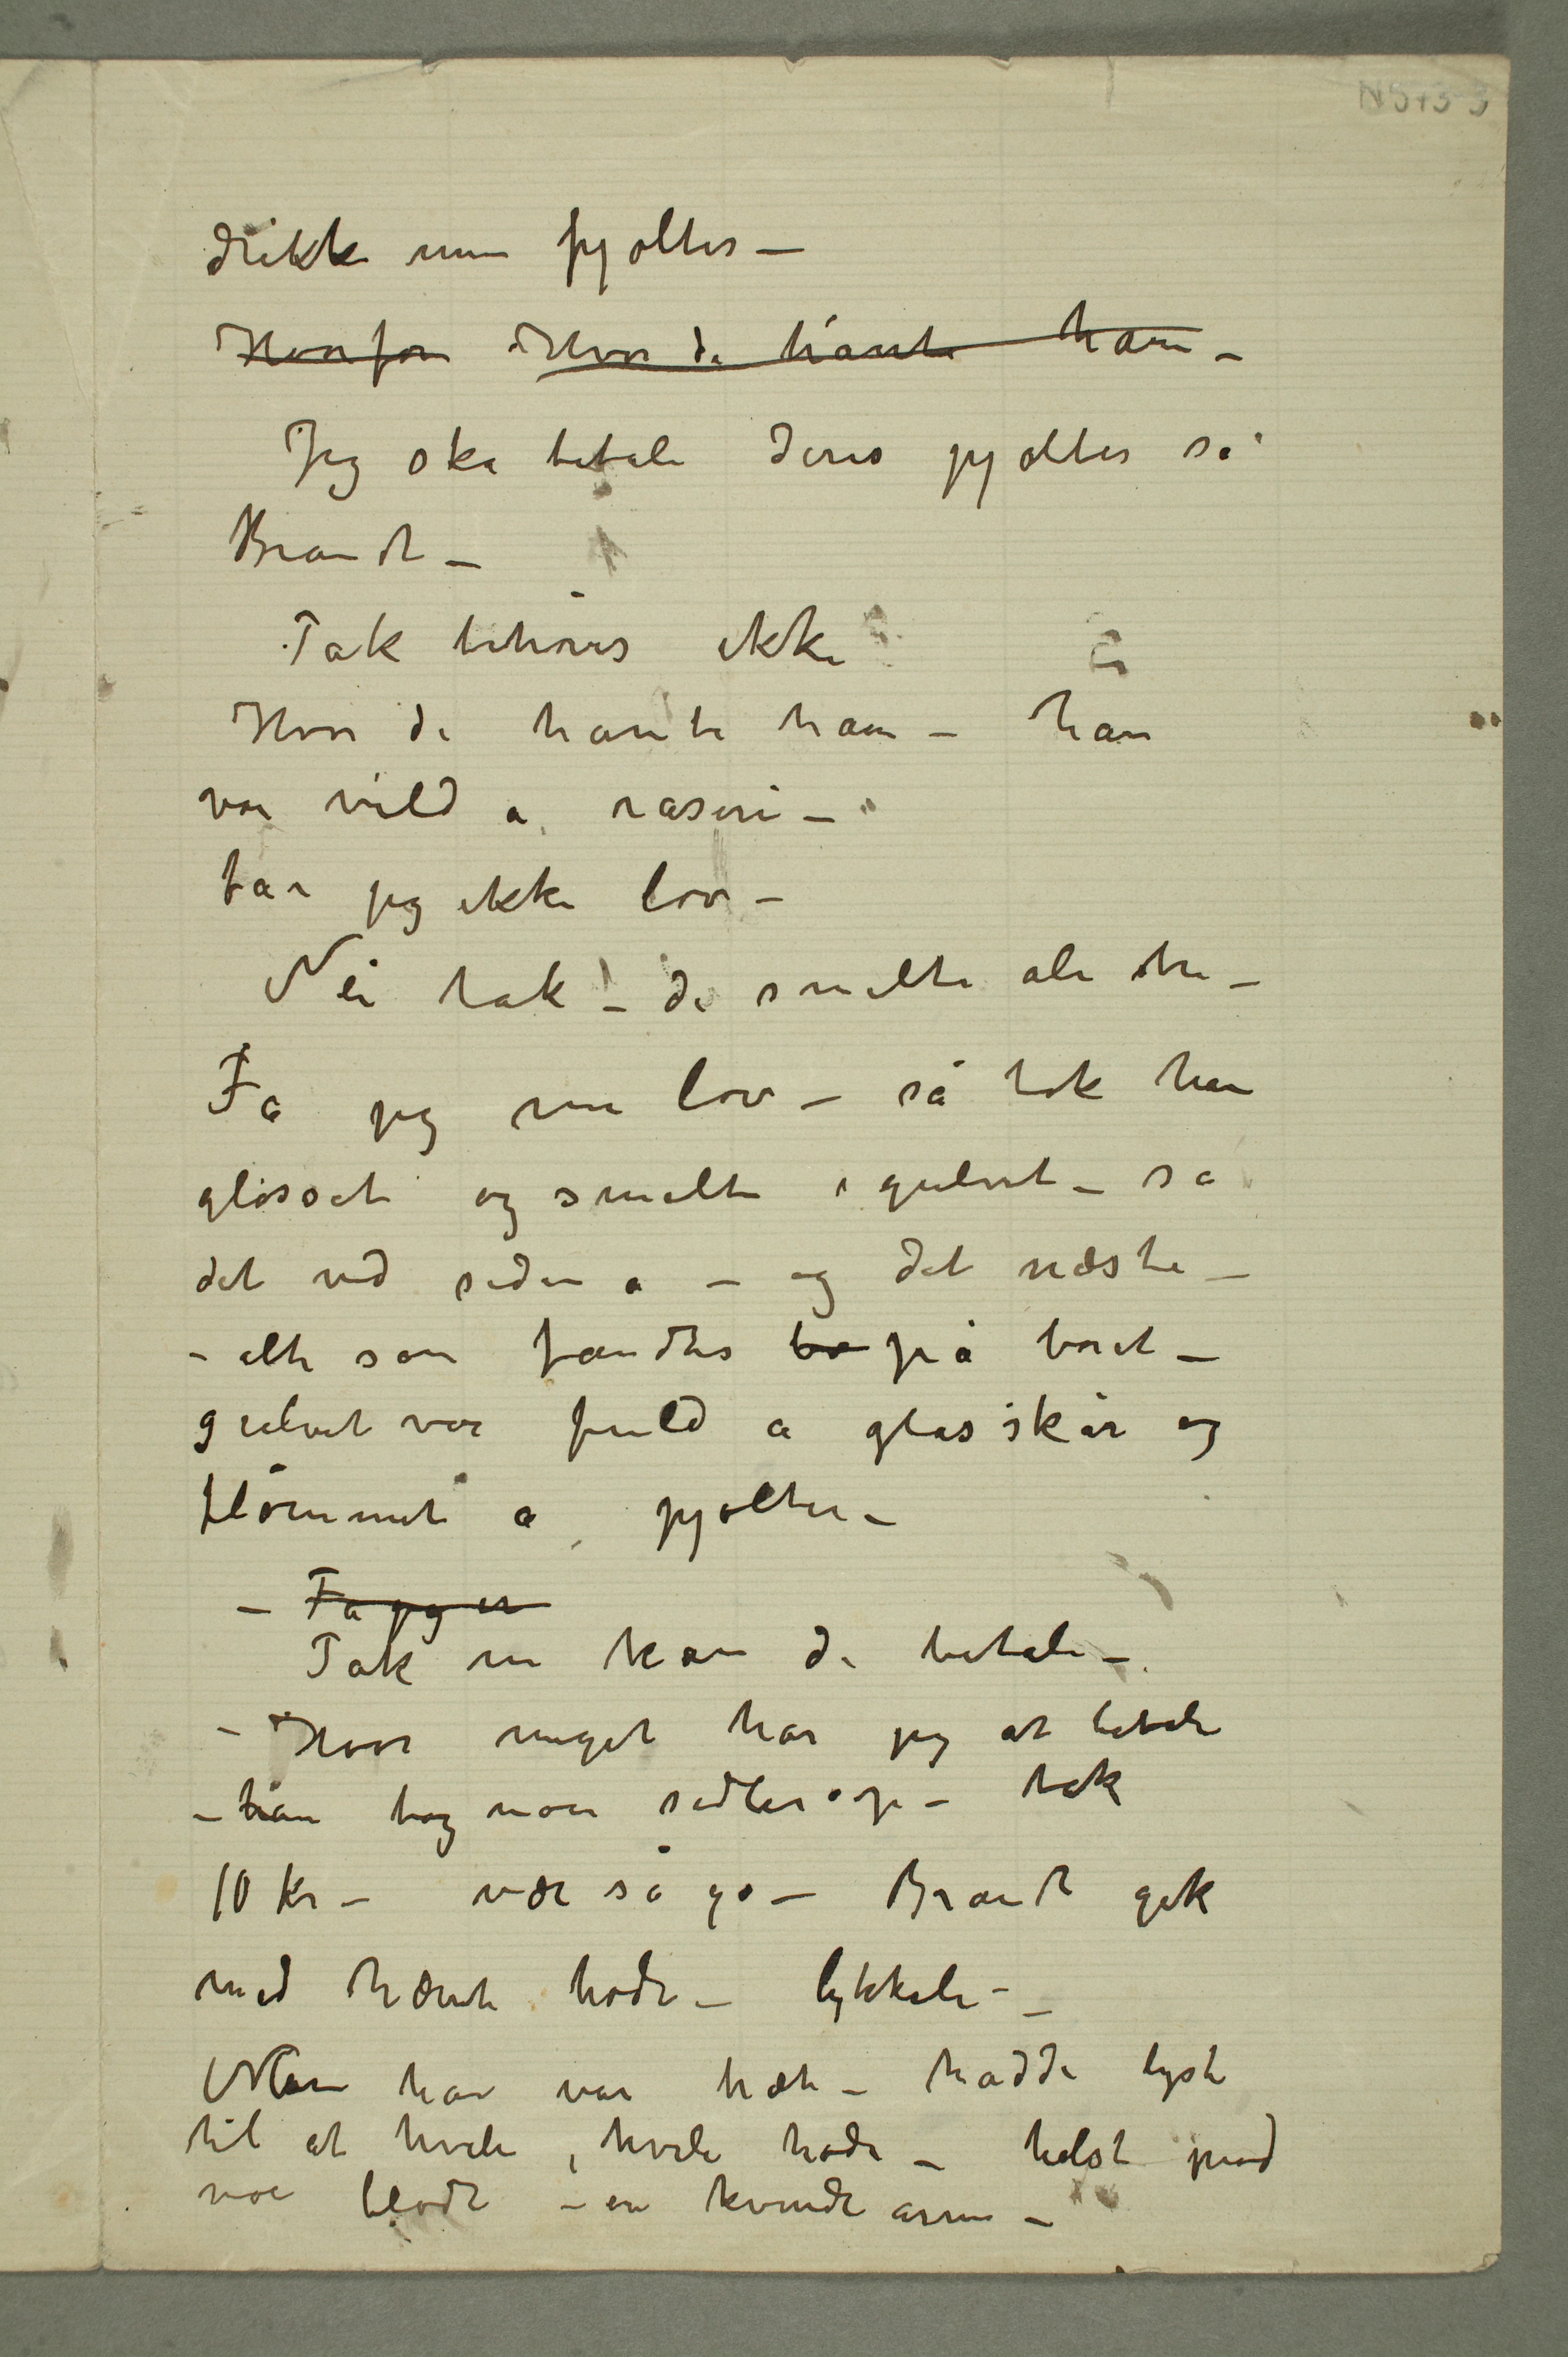 N 513-3
drikke min pjolter –
Hvorfor Hvor de hånte ham –
Jeg ska betale deres pjolter sa
Brandt –
Tak behøves ikke
Hvor de hånte ham – han
var vild a raseri –
far jeg ikke lov –
Nei tak – de smilte alle tre –
Fa jeg nu lov – så tok han
glasset og smelte i gulvet – sa
det ved siden a – og det næste –
– alt som fandtes bo på boret –
gulvet var fuld a glasskår og
flømmet a pjolter –
– Fa jeg en
Tak nu kan de betale –
– Hvor meget har jeg at betale
– han tog noen sedler op – tak
10 kr – vær så go – Brandt gik
med hævet hode – lykkelig –
Men han var træt – hadde lyst
til at hvile, hvile hode – helst mod
noe blødt – en kvindearm –